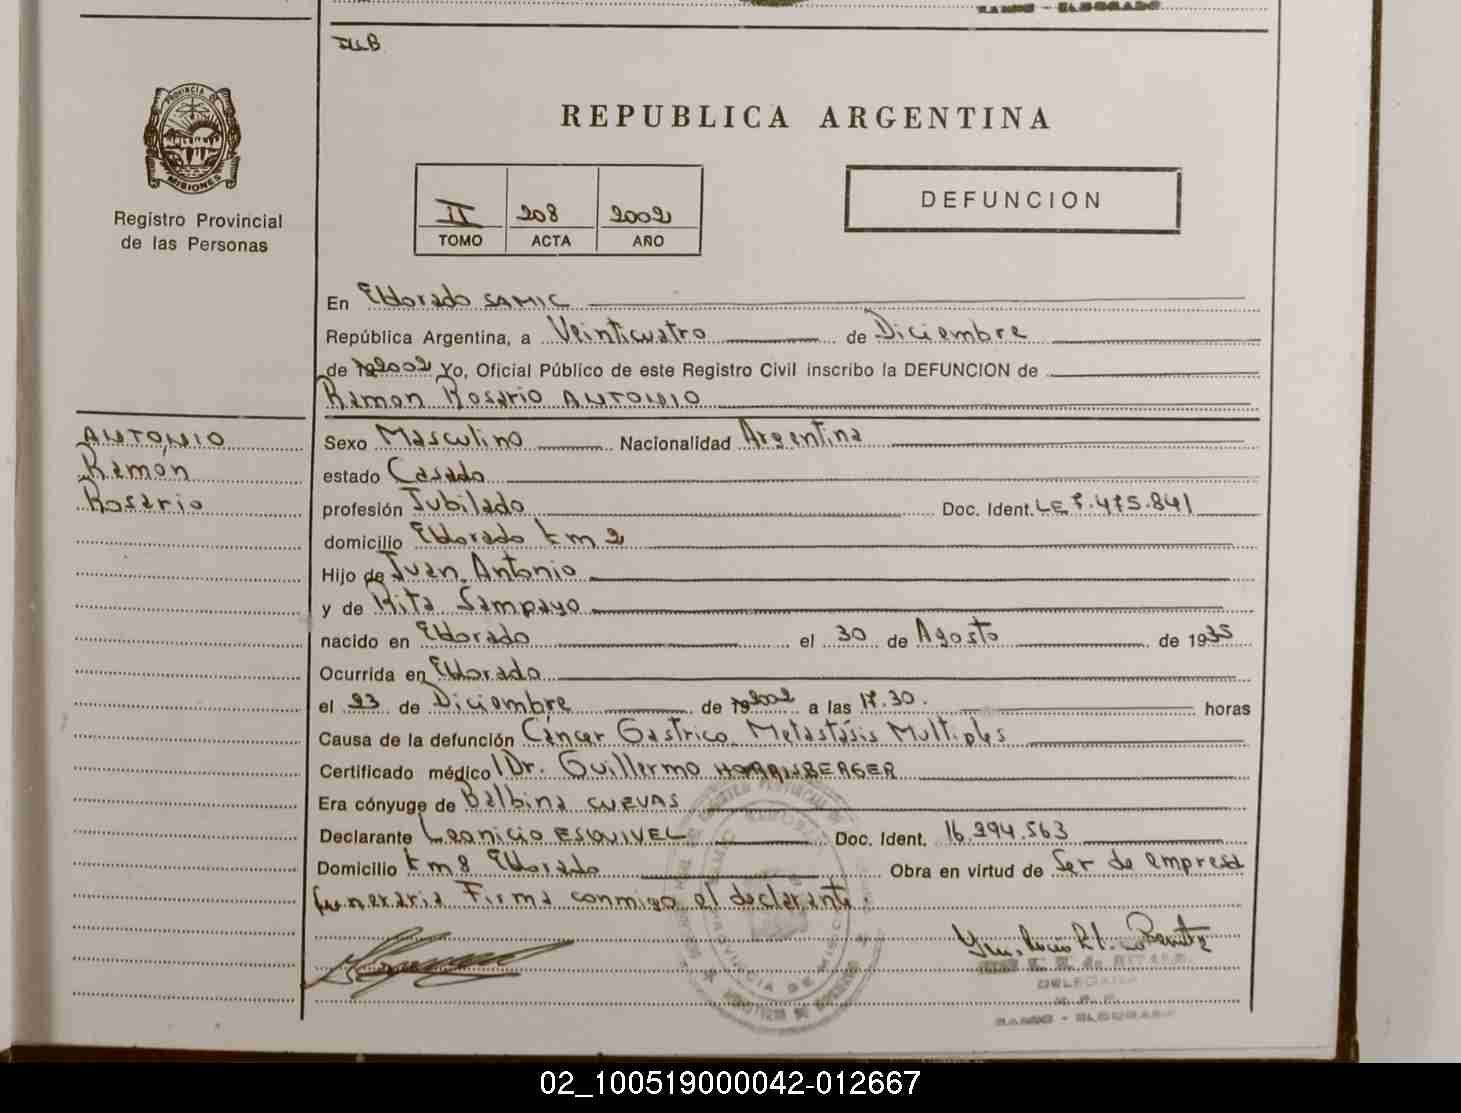 REPUBLICA ARGENTINA
PROVINCIA DE
MISIONES
Registro Provincial
de las Personas
II 208 2002
TOMO ACTA AÑO
DEFUNCION
En Eldorado SAMIC
República Argentina, a Veinticuatro de Diciembre
de 2002 Yo, Oficial Público de este Registro Civil inscribo la DEFUNCION de
Ramon Rosario ANTONIO
ANTONIO
Ramón
Rosario
Sexo Masculino Nacionalidad Argentina
estado Casado
profesión Jubilado Doc. Ident. LE 7.475.841
domicilio Eldorado km 2
Hijo de Juan Antonio
y de Rita Sampayo
nacido en Eldorado el 30 de Agosto de 1935
Ocurrida en Eldorado
el 23 de Diciembre de 2002 a las 17.30. horas
Causa de la defunción Cáncer Gastrico Metastásis Multiples
Certificado médico Dr. Guillermo
Era cónyuge de Balbina CUEVAS
Declarante Leonicio ESQUIVEL Doc. Ident. 16.294.563
Domicilio km 8 Eldorado Obra en virtud de Ser de empresa
funeraria Firma conmigo el declarante.
PROVINCIA DE MISIONES
DELEGADA
02_100519000042-012667